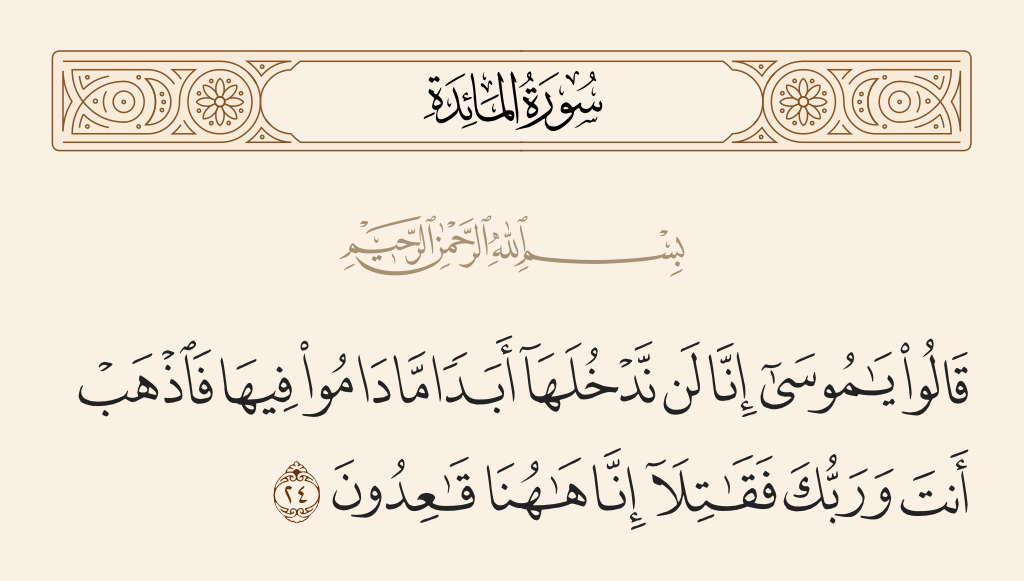 سُورَةُ المَائِدَةِ
بِسْمِ ٱللَّهِ ٱلرَّحْمَٰنِ ٱلرَّحِيمِ
قَالُوا۟ يَـٰمُوسَىٰٓ إِنَّا لَن نَّدْخُلَهَآ أَبَدًا مَّا دَامُوا۟ فِيهَا فَٱذْهَبْ
أَنتَ وَرَبُّكَ فَقَـٰتِلَآ إِنَّا هَـٰهُنَا قَـٰعِدُونَ ٢٤